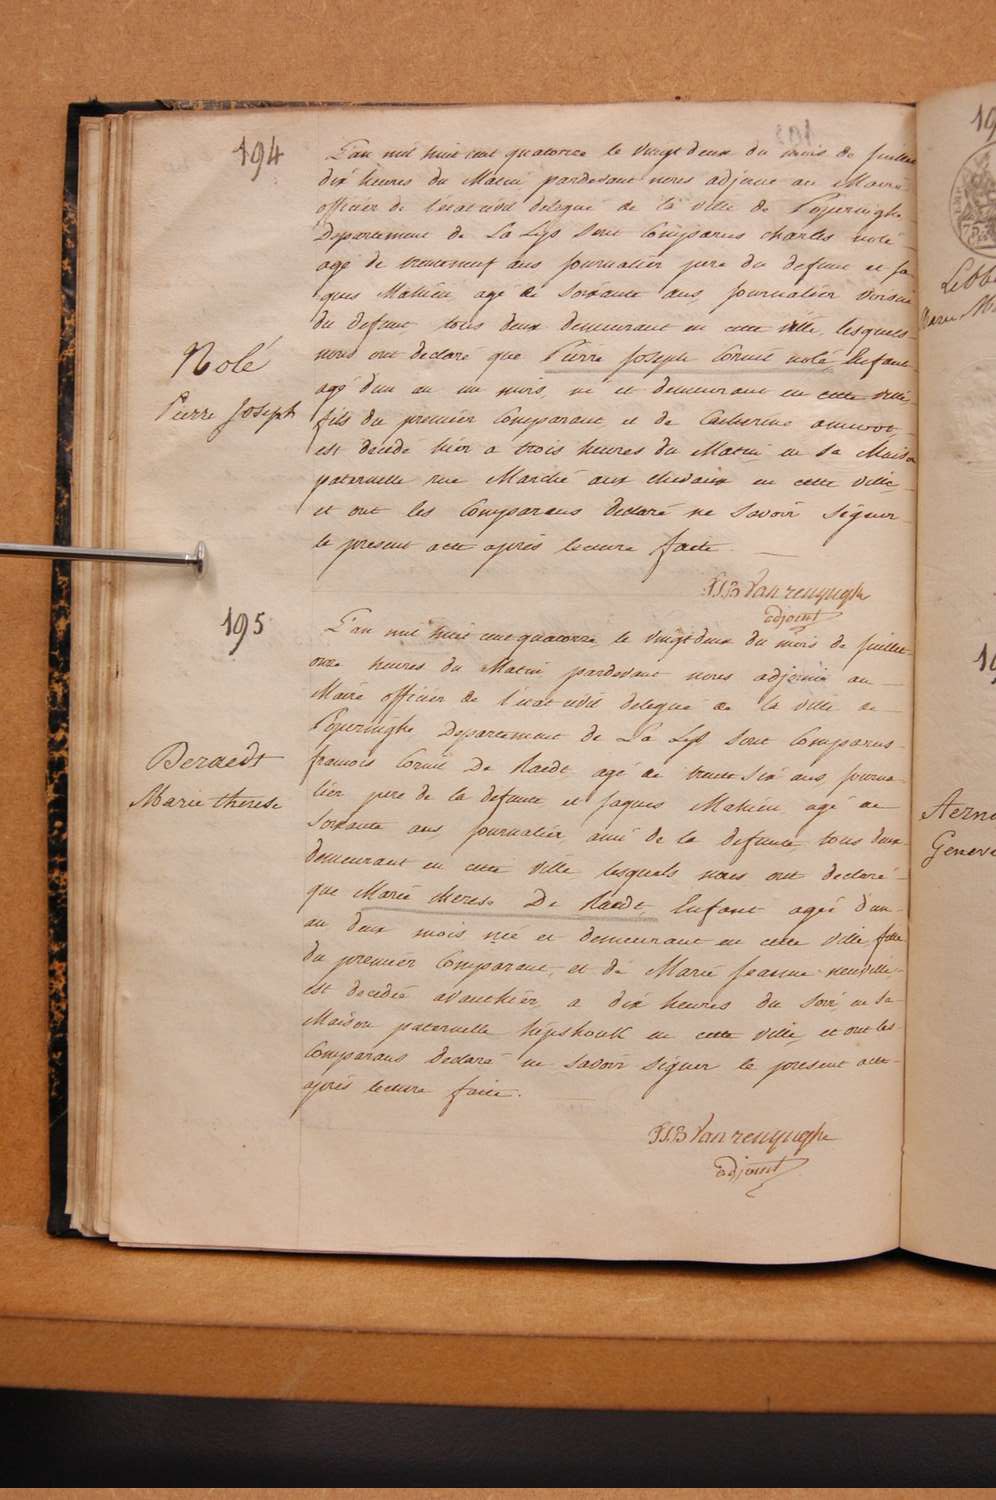 194
L'an mil huit cent quatorze le vingt deux du mois de juillet
dix heures du Matin pardevant nous adjoint au Maire
officier de l'etat civil delegué de la ville de Poperinghe
Departement de La Lys sont Comparus charles nolé
agé de trenteneuf ans journalier pere du defunt et ja
ques Mahieu agé de soixante ans, journalier voisin
du defunt tous deux demeurant en cette ville, lesquels
nous ont declaré que Pierre Joseph Cornil nolé, Enfant
agé d'un an un mois, né et demeurant en cette ville
fils du premier Comparant, et de Catherine
est decédé hier a trois heures du Matin en sa Maison
paternelle rue Marché aux chevaux en cette ville,
et ont les Comparans declaré ne savoir signer
le present acte après lecture faite.
Nolé
Pierre Joseph
F.J.B Vanrenynghe
adjoint
195
L'an mil huit cent quatorze, le vingtdeux du mois de juillet
onze heures du Matin pardevant nous adjoint au
Maire officier de l'etat civil delegué de la ville de
Poperinghe Departement de La Lys sont Comparus
francois Cornil De Raedt agé de trente six ans, journa-
lier pere de la defunte et jaques Mahieu agé de
soixante ans journalier, ami de la defunte, tous deux
demeurant en cette ville lesquels nous ont declaré
que Marie therese De Raedt, Enfant agée d'un
an deux mois née et demeurant en cette ville, fille
du premier Comparant, et de Marie Jeanne neuville,
est decedée avanthier, a dix heures du soir, en sa
Maison paternelle hipshouk en cette ville, et ont les
Comparans declaré ne savoir signer le present acte
après lecture faite.
Deraedt
Marie therese
F.J.B Vanrenynghe
adjoint
19
Marie M
19
Aerno
Genevi